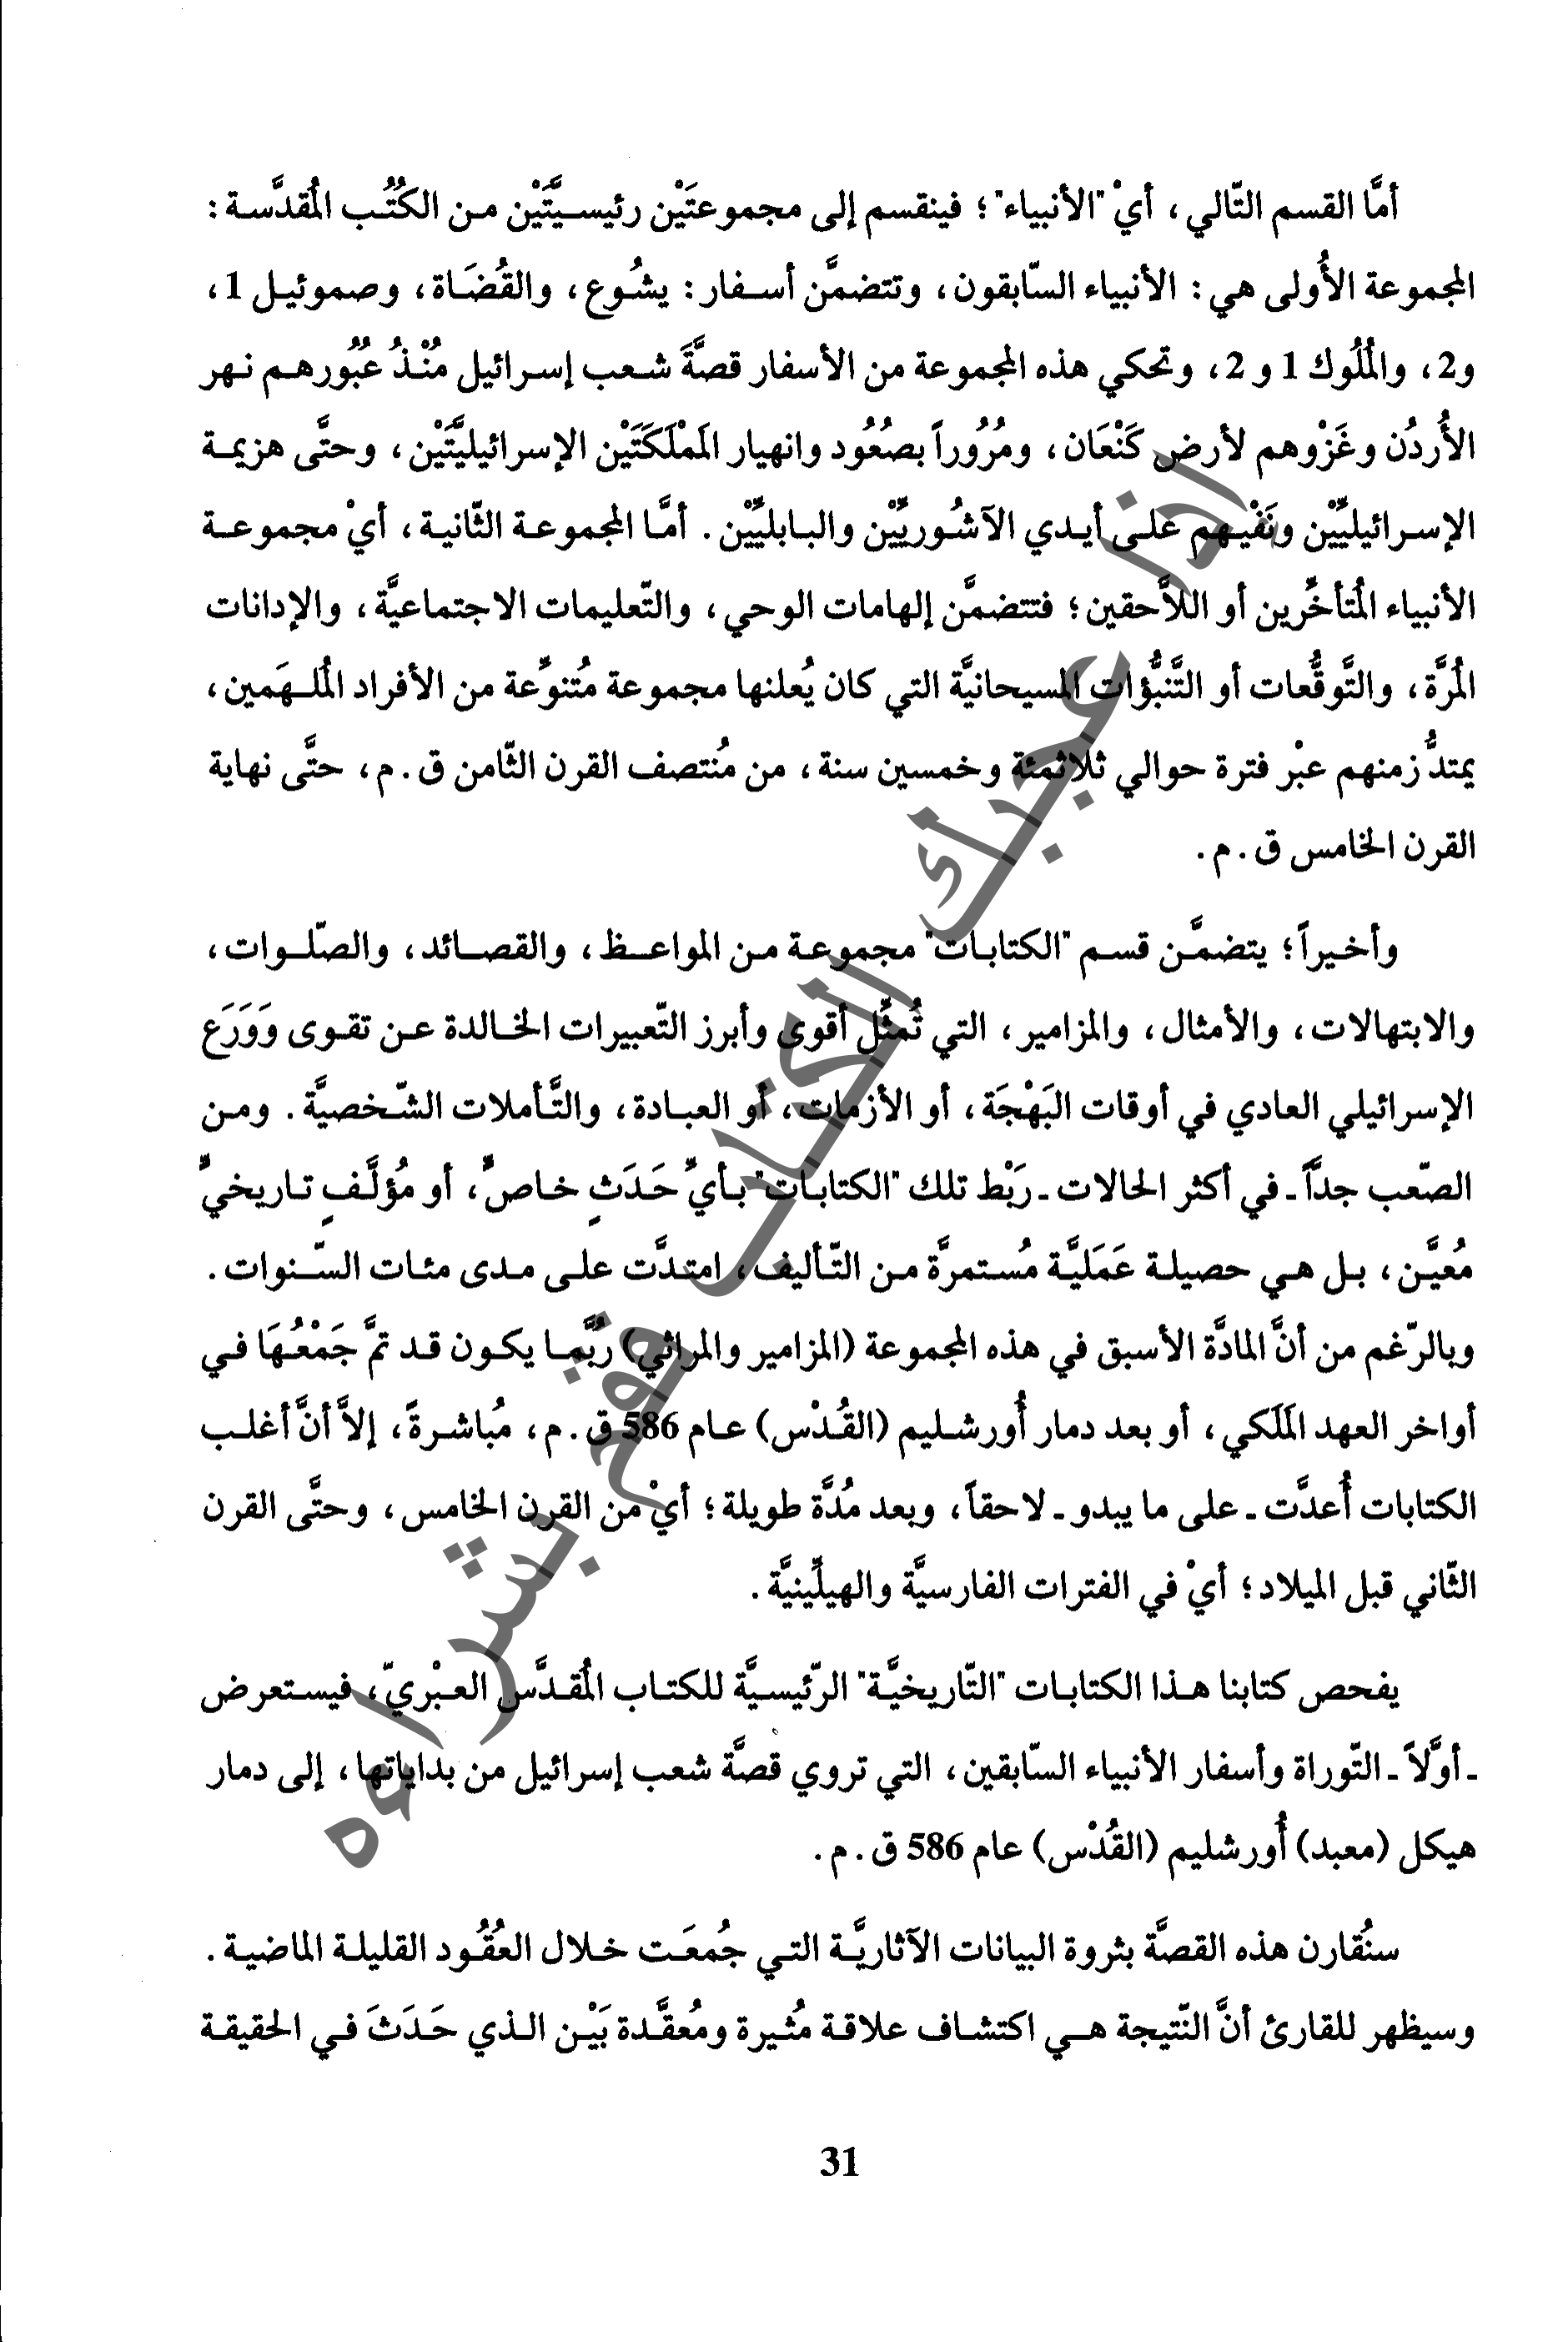 أمَّا القسم التّالي، أيْ "الأنبياء"؛ فينقسم إلى مجموعتَيْن رئيسيَّتَيْن من الكُتُب المُقدَّسة:
المجموعة الأُولى هي: الأنبياء السّابقون، وتتضمَّن أسفار: يشُوع، والقُضَاة، وصموئيل 1،
و2، والمُلُوك 1 و 2، وتحكي هذه المجموعة من الأسفار قصَّةَ شعب إسرائيل مُنْذُ عُبُورهم نهر
الأُردُن وغَزْوهم لأرض كَنْعَان، ومُرُوراً بصُعُود وانهيار المَمْلَكَتَيْن الإسرائيليَّتَيْن، وحتَّى هزيمة
الإسرائيليِّيْن ونَفْيهم على أيدي الآشُوريِّيْن والبابليِّيْن. أمَّا المجموعة الثّانية، أيْ مجموعة
الأنبياء المُتأخِّرين أو اللاَّحقين؛ فتتضمَّن إلهامات الوحي، والتّعليمات الاجتماعيَّة، والإدانات
المُرَّة، والتَّوقُّعات أو التَّنبُّؤات المسيحانيَّة التي كان يُعلنها مجموعة مُتنوِّعة من الأفراد المُلهَمين،
يمتدُّ زمنهم عبْر فترة حوالي ثلاثمئة وخمسين سنة، من مُنتصف القرن الثّامن ق.م، حتَّى نهاية
القرن الخامس ق.م.
وأخيراً؛ يتضمَّن قسم "الكتابات" مجموعة من المواعظ، والقصائد، والصّلوات،
والابتهالات، والأمثال، والمزامير، التي تُمثِّل أقوى وأبرز التّعبيرات الخالدة عن تقوى وَوَرَع
الإسرائيلي العادي في أوقات البَهْجَة، أو الأزمات، أو العبادة، والتَّأملات الشّخصيَّة. ومن
الصّعب جدَّاً ـ في أكثر الحالات ـ رَبْط تلك "الكتابات" بأيِّ حَدَثٍ خاصٍّ، أو مُؤلَّفٍ تاريخيٍّ
مُعيَّن، بل هي حصيلة عَمَليَّة مُستمرَّة من التّأليف، امتدَّت على مدى مئات السّنوات.
وبالرّغم من أنَّ المادَّة الأسبق في هذه المجموعة (المزامير والمراثي) رُبَّما يكون قد تمَّ جَمْعُهَا في
أواخر العهد المَلَكي، أو بعد دمار أُورشليم (القُدْس) عام 586 ق.م، مُباشرةً، إلاَّ أنَّ أغلب
الكتابات أُعدَّت ـ على ما يبدو ـ لاحقاً، وبعد مُدَّة طويلة؛ أيْ من القرن الخامس، وحتَّى القرن
الثّاني قبل الميلاد؛ أيْ في الفترات الفارسيَّة والهيلِّينيَّة.
يفحص كتابنا هذا الكتابات "التّاريخيَّة" الرّئيسيَّة للكتاب المُقدَّس العبْريّ، فيستعرض
ـ أوَّلاً ـ التّوراة وأسفار الأنبياء السّابقين، التي تروي قصَّة شعب إسرائيل من بداياتها، إلى دمار
هيكل (معبد) أُورشليم (القُدْس) عام 586 ق.م.
سنُقارن هذه القصَّة بثروة البيانات الآثاريَّة التي جُمعَت خلال العُقُود القليلة الماضية.
وسيظهر للقارئ أنَّ النّتيجة هي اكتشاف علاقة مُثيرة ومُعقَّدة بَيْن الذي حَدَثَ في الحقيقة
31
إذا عجبك الكتاب قم بشراءه